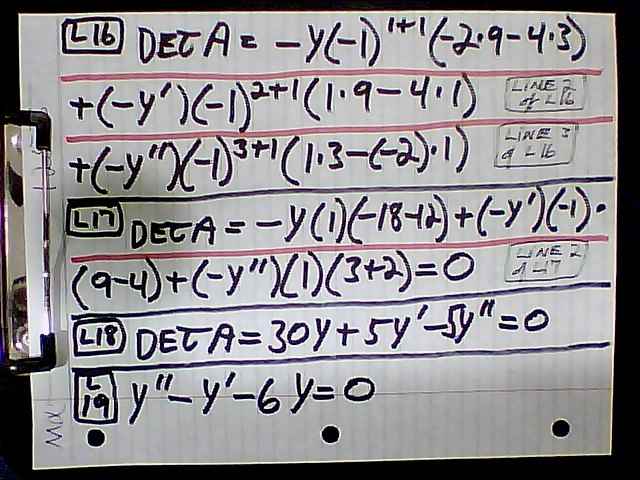 L16 DET A = -y(-1)^1+1 (-2·9-4·3)
+(-y')(-1)^2+1 (1·9-4·1) LINE 2 of L16
+(-y'')(-1)^3+1 (1·3-(-2)·1) LINE 3 of L16
L17 DET A = -y(1)(-18-12)+(-y')(-1)·
(9-4)+(-y'')(1)(3+2)=0 LINE 2 of L17
L18 DET A = 30y+5y'-5y''=0
L19 y''-y'-6y=0